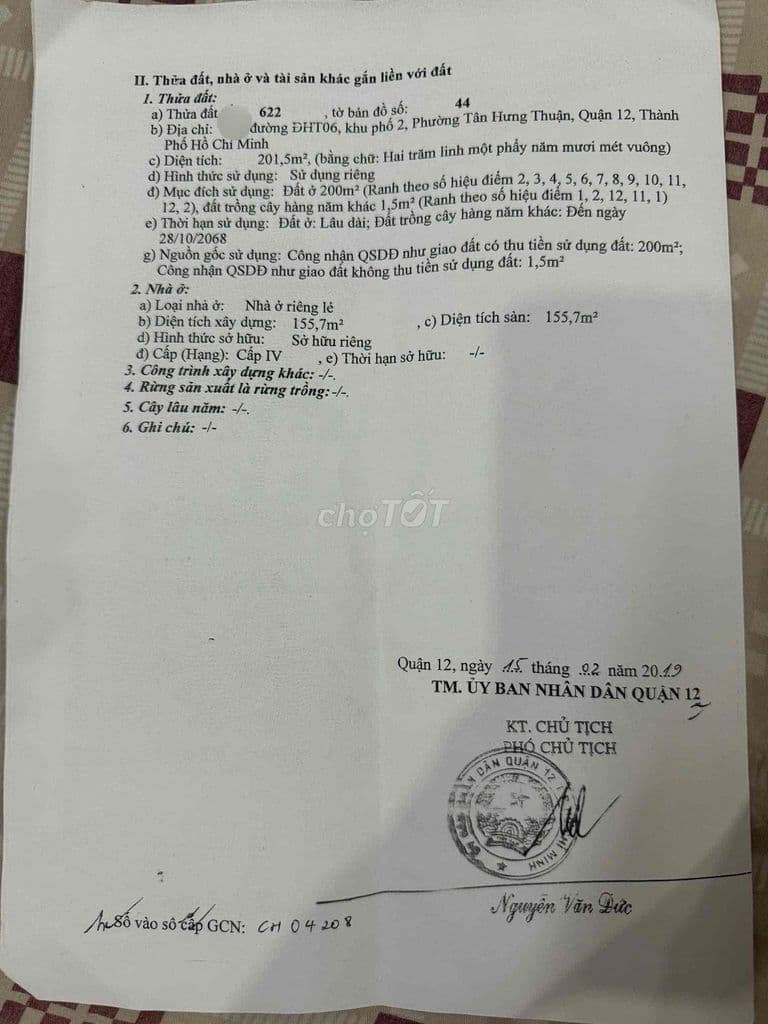 II. Thửa đất, nhà ở và tài sản khác gắn liền với đất
1. Thửa đất:
a) Thửa đất 622 , tờ bản đồ số: 44
b) Địa chỉ: đường ĐHT06, khu phố 2, Phường Tân Hưng Thuận, Quận 12, Thành
Phố Hồ Chí Minh
c) Diện tích: 201,5m², (bằng chữ: Hai trăm linh một phẩy năm mươi mét vuông)
d) Hình thức sử dụng: Sử dụng riêng
đ) Mục đích sử dụng: Đất ở 200m² (Ranh theo số hiệu điểm 2, 3, 4, 5, 6, 7, 8, 9, 10, 11,
12, 2), đất trồng cây hàng năm khác 1,5m² (Ranh theo số hiệu điểm 1, 2, 12, 11, 1)
e) Thời hạn sử dụng: Đất ở: Lâu dài; Đất trồng cây hàng năm khác: Đến ngày
28/10/2068
g) Nguồn gốc sử dụng: Công nhận QSDĐ như giao đất có thu tiền sử dụng đất: 200m²;
Công nhận QSDĐ như giao đất không thu tiền sử dụng đất: 1,5m²
2. Nhà ở:
a) Loại nhà ở: Nhà ở riêng lẻ
b) Diện tích xây dựng: 155,7m² , c) Diện tích sàn: 155,7m²
d) Hình thức sở hữu: Sở hữu riêng
đ) Cấp (Hạng): Cấp IV , e) Thời hạn sở hữu: -/-
3. Công trình xây dựng khác: -/-.
4. Rừng sản xuất là rừng trồng: -/-.
5. Cây lâu năm: -/-.
6. Ghi chú: -/-
chợTỐT
Quận 12, ngày 15 tháng 02 năm 2019
TM. ỦY BAN NHÂN DÂN QUẬN 12
KT. CHỦ TỊCH
PHÓ CHỦ TỊCH
DÂN QUẬN 12
CHÍ MINH
Nguyễn Văn Đức
Số vào sổ cấp GCN: CH 04208